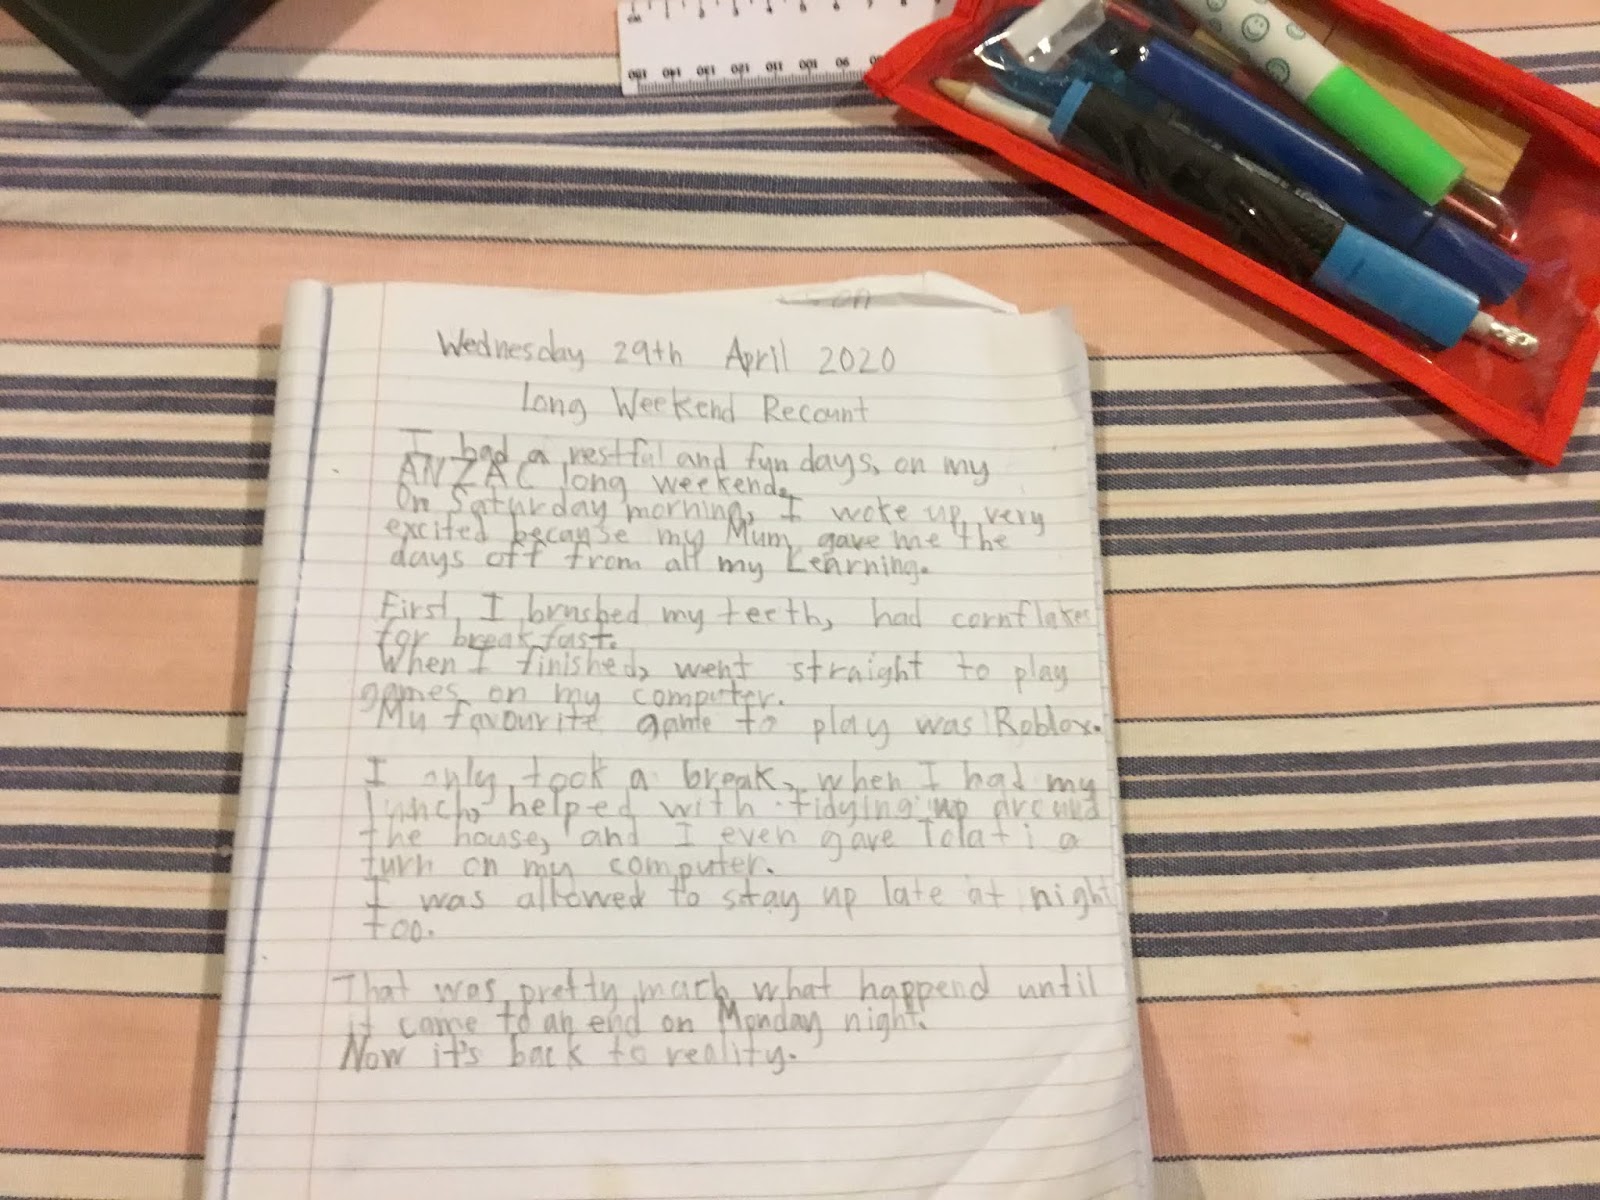 Wednesday 29th April 2020
Long Weekend Recount
I had a restful and fun days, on my
ANZAC long weekend.
On Saturday morning, I woke up very
excited because my Mum gave me the
days off from all my Learning.
First, I brushed my teeth, had cornflakes
for breakfast.
When I finished, went straight to play
games on my computer.
My favourite game to play was Roblox.
I only took a break, when I had my
lunch, helped with tidying up around
the house, and I even gave Tolati a
turn on my computer.
I was allowed to stay up late at night
too.
That was pretty much what happend until
it came to an end on Monday night.
Now it's back to reality.